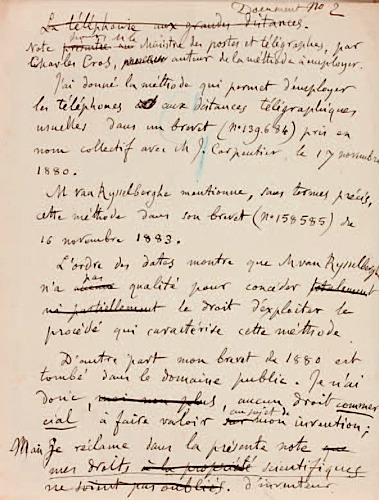 Document No 2
La téléphonie aux grandes distances.
Note au Ministre des postes et télégraphes, par
Charles Cros, auteur de la méthode à employer.
J'ai donné la méthode qui permet d'employer
les téléphones aux distances télégraphiques
usuelles dans un brevet (No 139.684) pris en
nom collectif avec M J. Carpentier, le 17 novembre
1880.
M van Rysselberghe mentionne, sans termes précis,
cette méthode dans son brevet (No 158585) de
16 novembre 1883.
L'ordre des dates montre que M van Rysselberghe
n'a pas aucune qualité pour concéder totalement
ni partiellement le droit d'exploiter le
procédé qui caractérise cette méthode.
D'autre part mon brevet de 1880 est
tombé dans le domaine public. Je n'ai
donc, moi non plus, aucun droit commer
cial à faire valoir au sujet de sur mon invention;
Mais je réclame dans la présente note que
mes droits à la propriété scientifiques
ne soient pas oubliés. d'inventeur